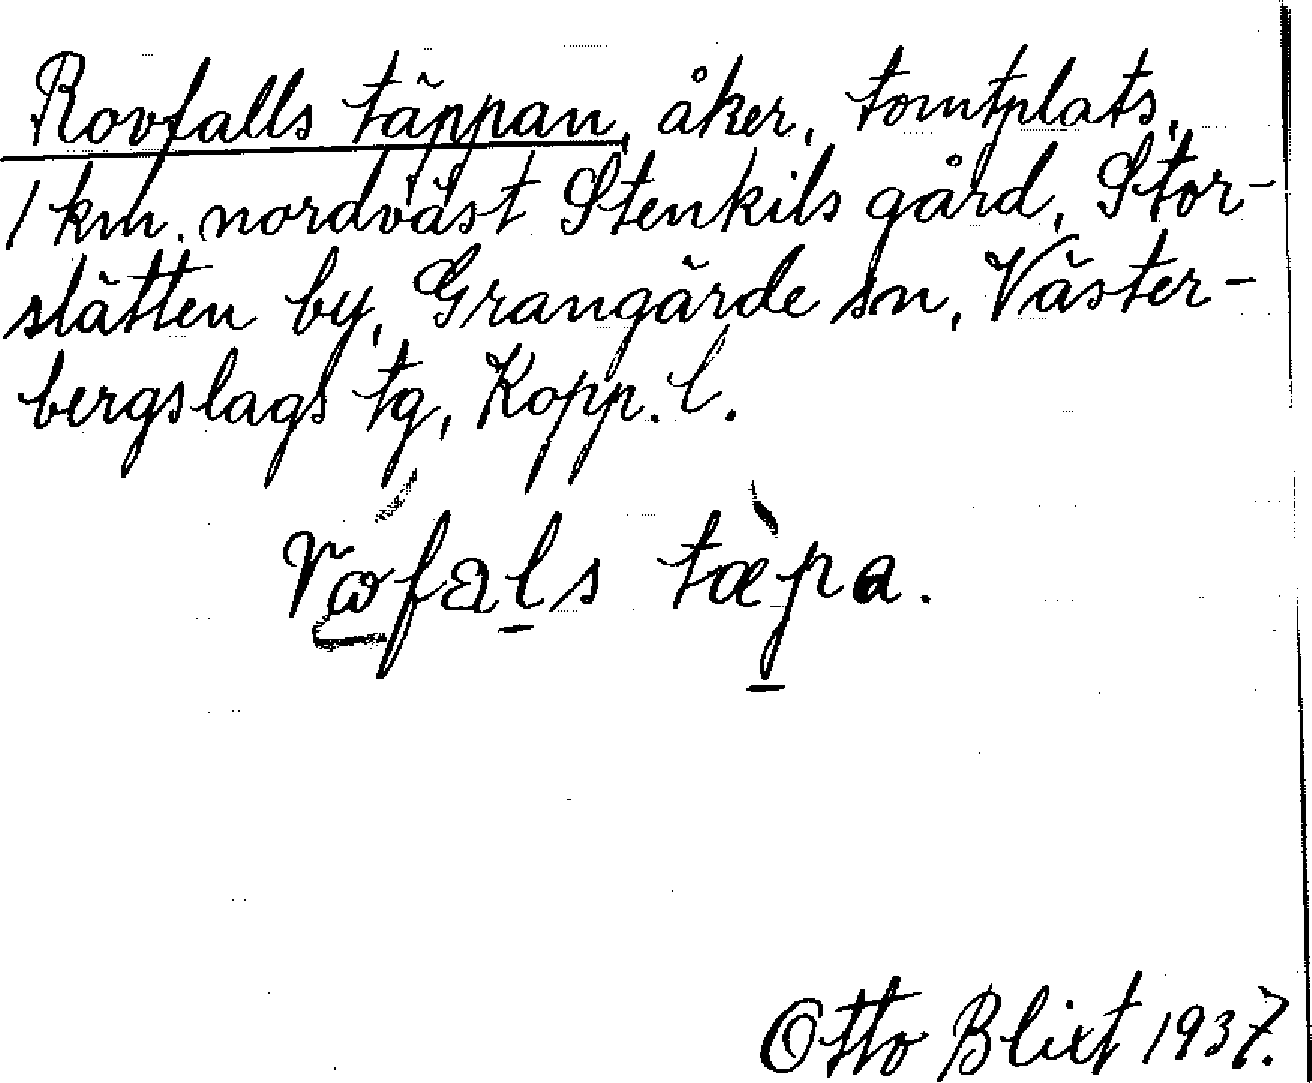 Rovfalls täppan, åker, tomtplats,
1 km. nordväst Stenkils gård, Stor-
slätten by, Grangärde sn, Väster-
bergslags tg, Kopp. l.
tæ̀pa.
Otto Blixt 1937.